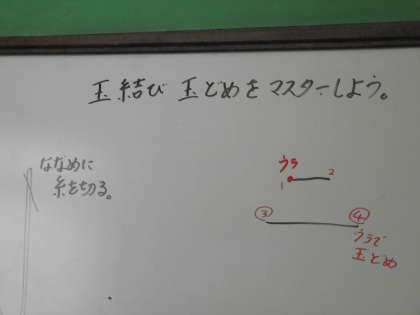 玉結び 玉どめをマスターしよう。
ななめに
糸を切る。
うら
1 2
③ ④
うらで
玉どめ